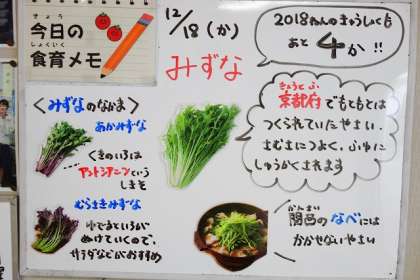 きょう
今日の
しょくいく
食育メモ
12/18(か)
みずな
2018ねんのきゅうしょくも
あと 4か !!
<みずなのなかま>
あかみずな
くきのいろは
アントシアニンという
しきそ
むらさきみずな
ゆでるといろが
ぬけていくので、
サラダなどがおすすめ
きょうとふ
京都府でもともとは
つくられていたやさい。
さむさにつよく、ふゆに
しゅうかくされます
かんさい
関西のなべには
かかせないやさい